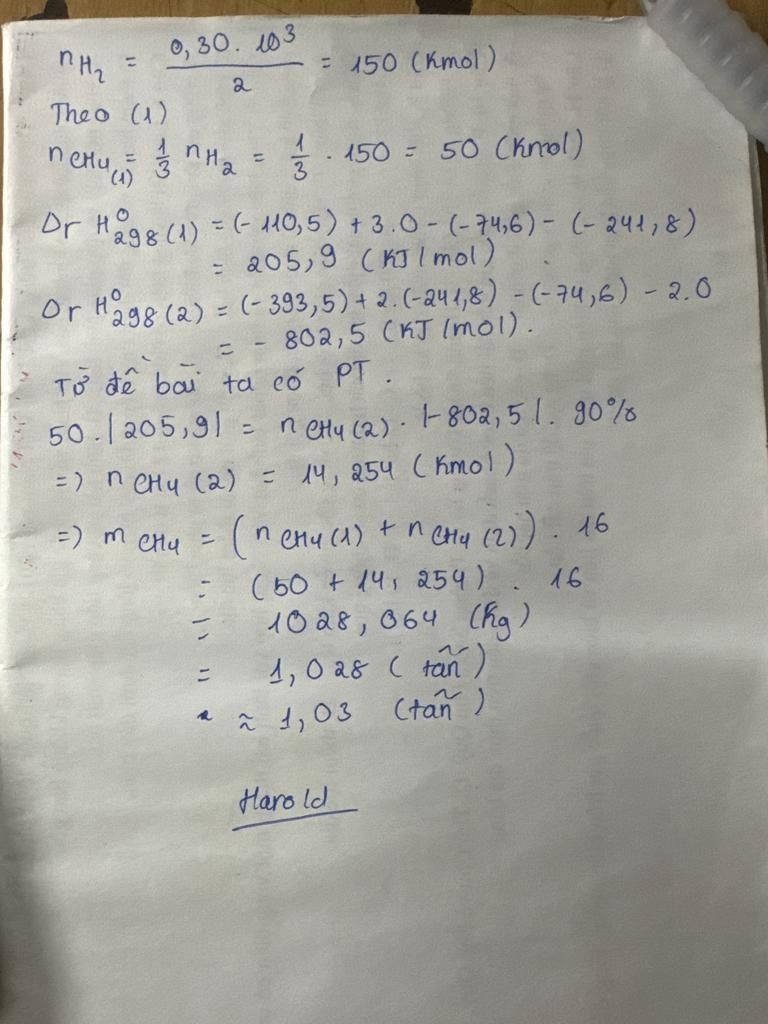 nH₂ = 0,30. 10³ / 2 = 150 (Kmol)
Theo (1)
nCH₄(1) = 1/3 nH₂ = 1/3 . 150 = 50 (Kmol)
Δr H⁰298 (1) = (- 110,5) + 3.0 - (-74,6) - (- 241,8)
= 205,9 (KJ/mol)
Δr H⁰298 (2) = (- 393,5) + 2.(-241,8) - (-74,6) - 2.0
= - 802,5 (KJ/mol).
Từ đề bài ta có PT.
50.|205,9| = nCH₄(2) . |-802,5|. 90%
=> nCH₄ (2) = 14,254 (Kmol)
=> mCH₄ = (nCH₄(1) + nCH₄(2)) . 16
= (50 + 14,254) . 16
= 1028,064 (Kg)
= 1,028 (tấn)
≈ 1,03 (tấn)
Harold